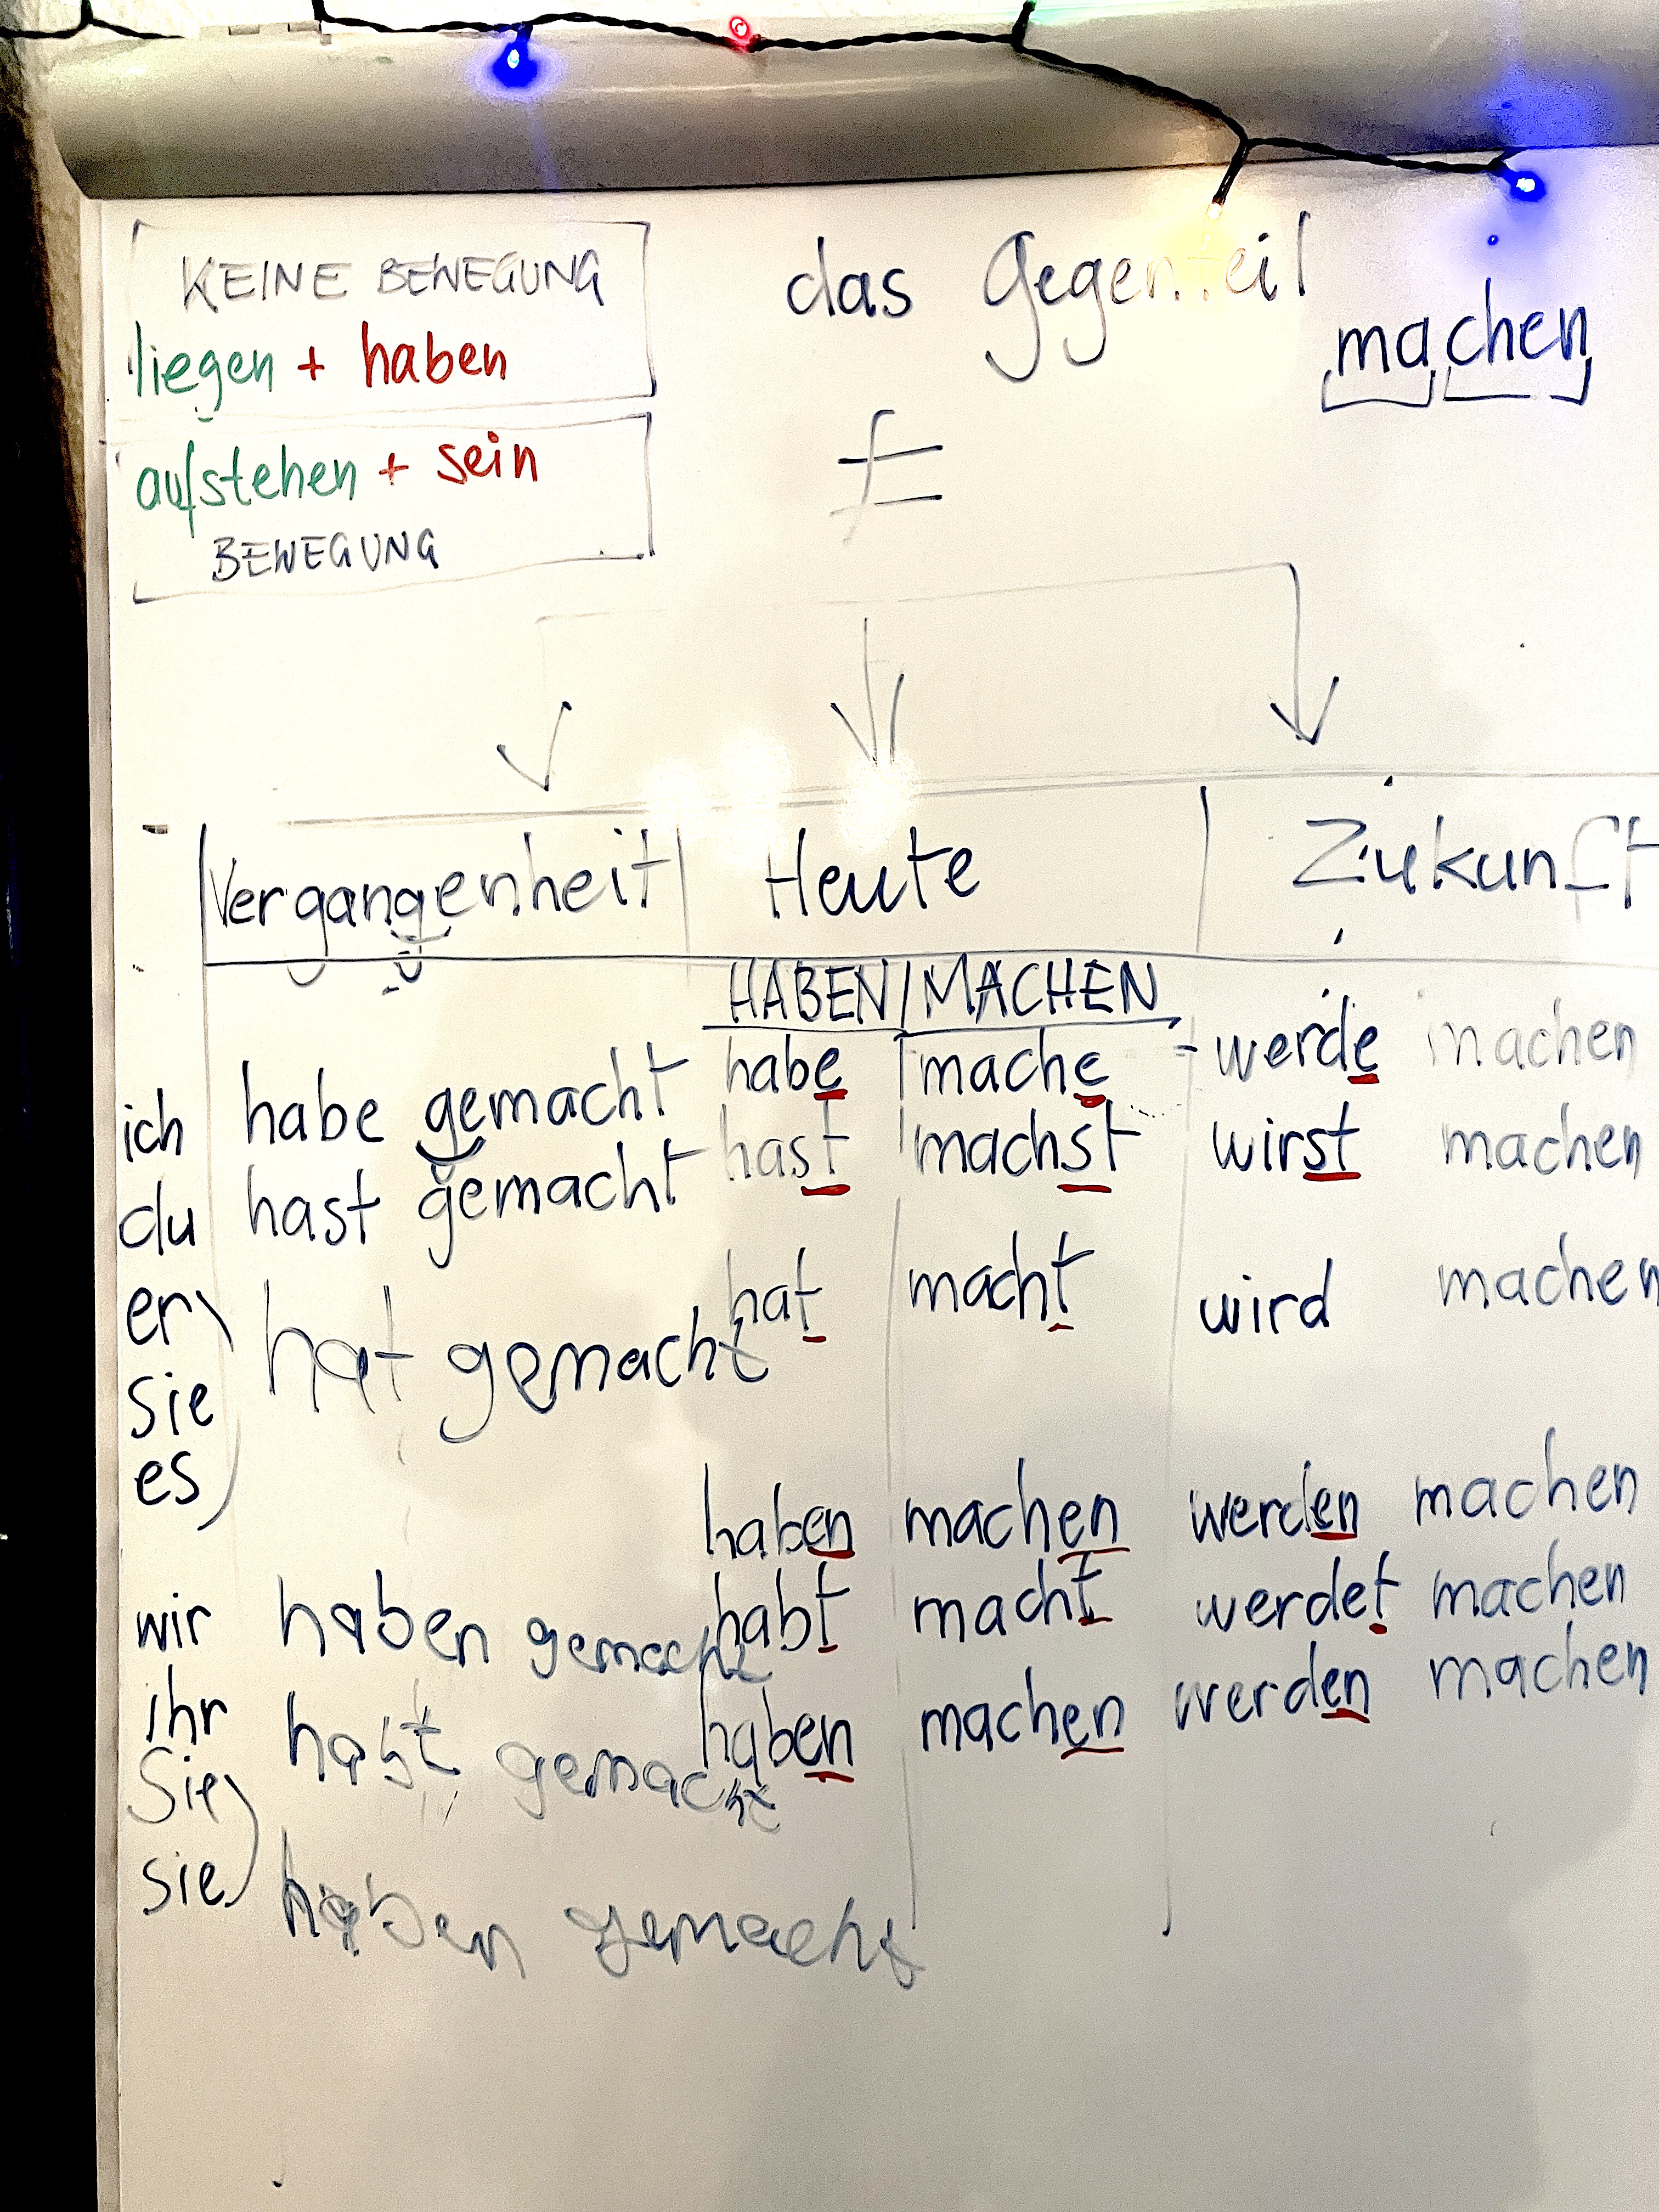 KEINE BEWEGUNG
liegen + haben
aufstehen + sein
BEWEGUNG
das Gegenteil
≠
machen
Vergangenheit Heute Zukunft
HABEN/MACHEN
ich habe gemacht habe mache - werde machen
du hast gemacht hast machst wirst machen
er hat gemacht hat macht wird machen
sie
es
wir haben gemacht haben machen werden machen
ihr habt gemacht habt macht werdet machen
Sie haben gemacht haben machen werden machen
sie